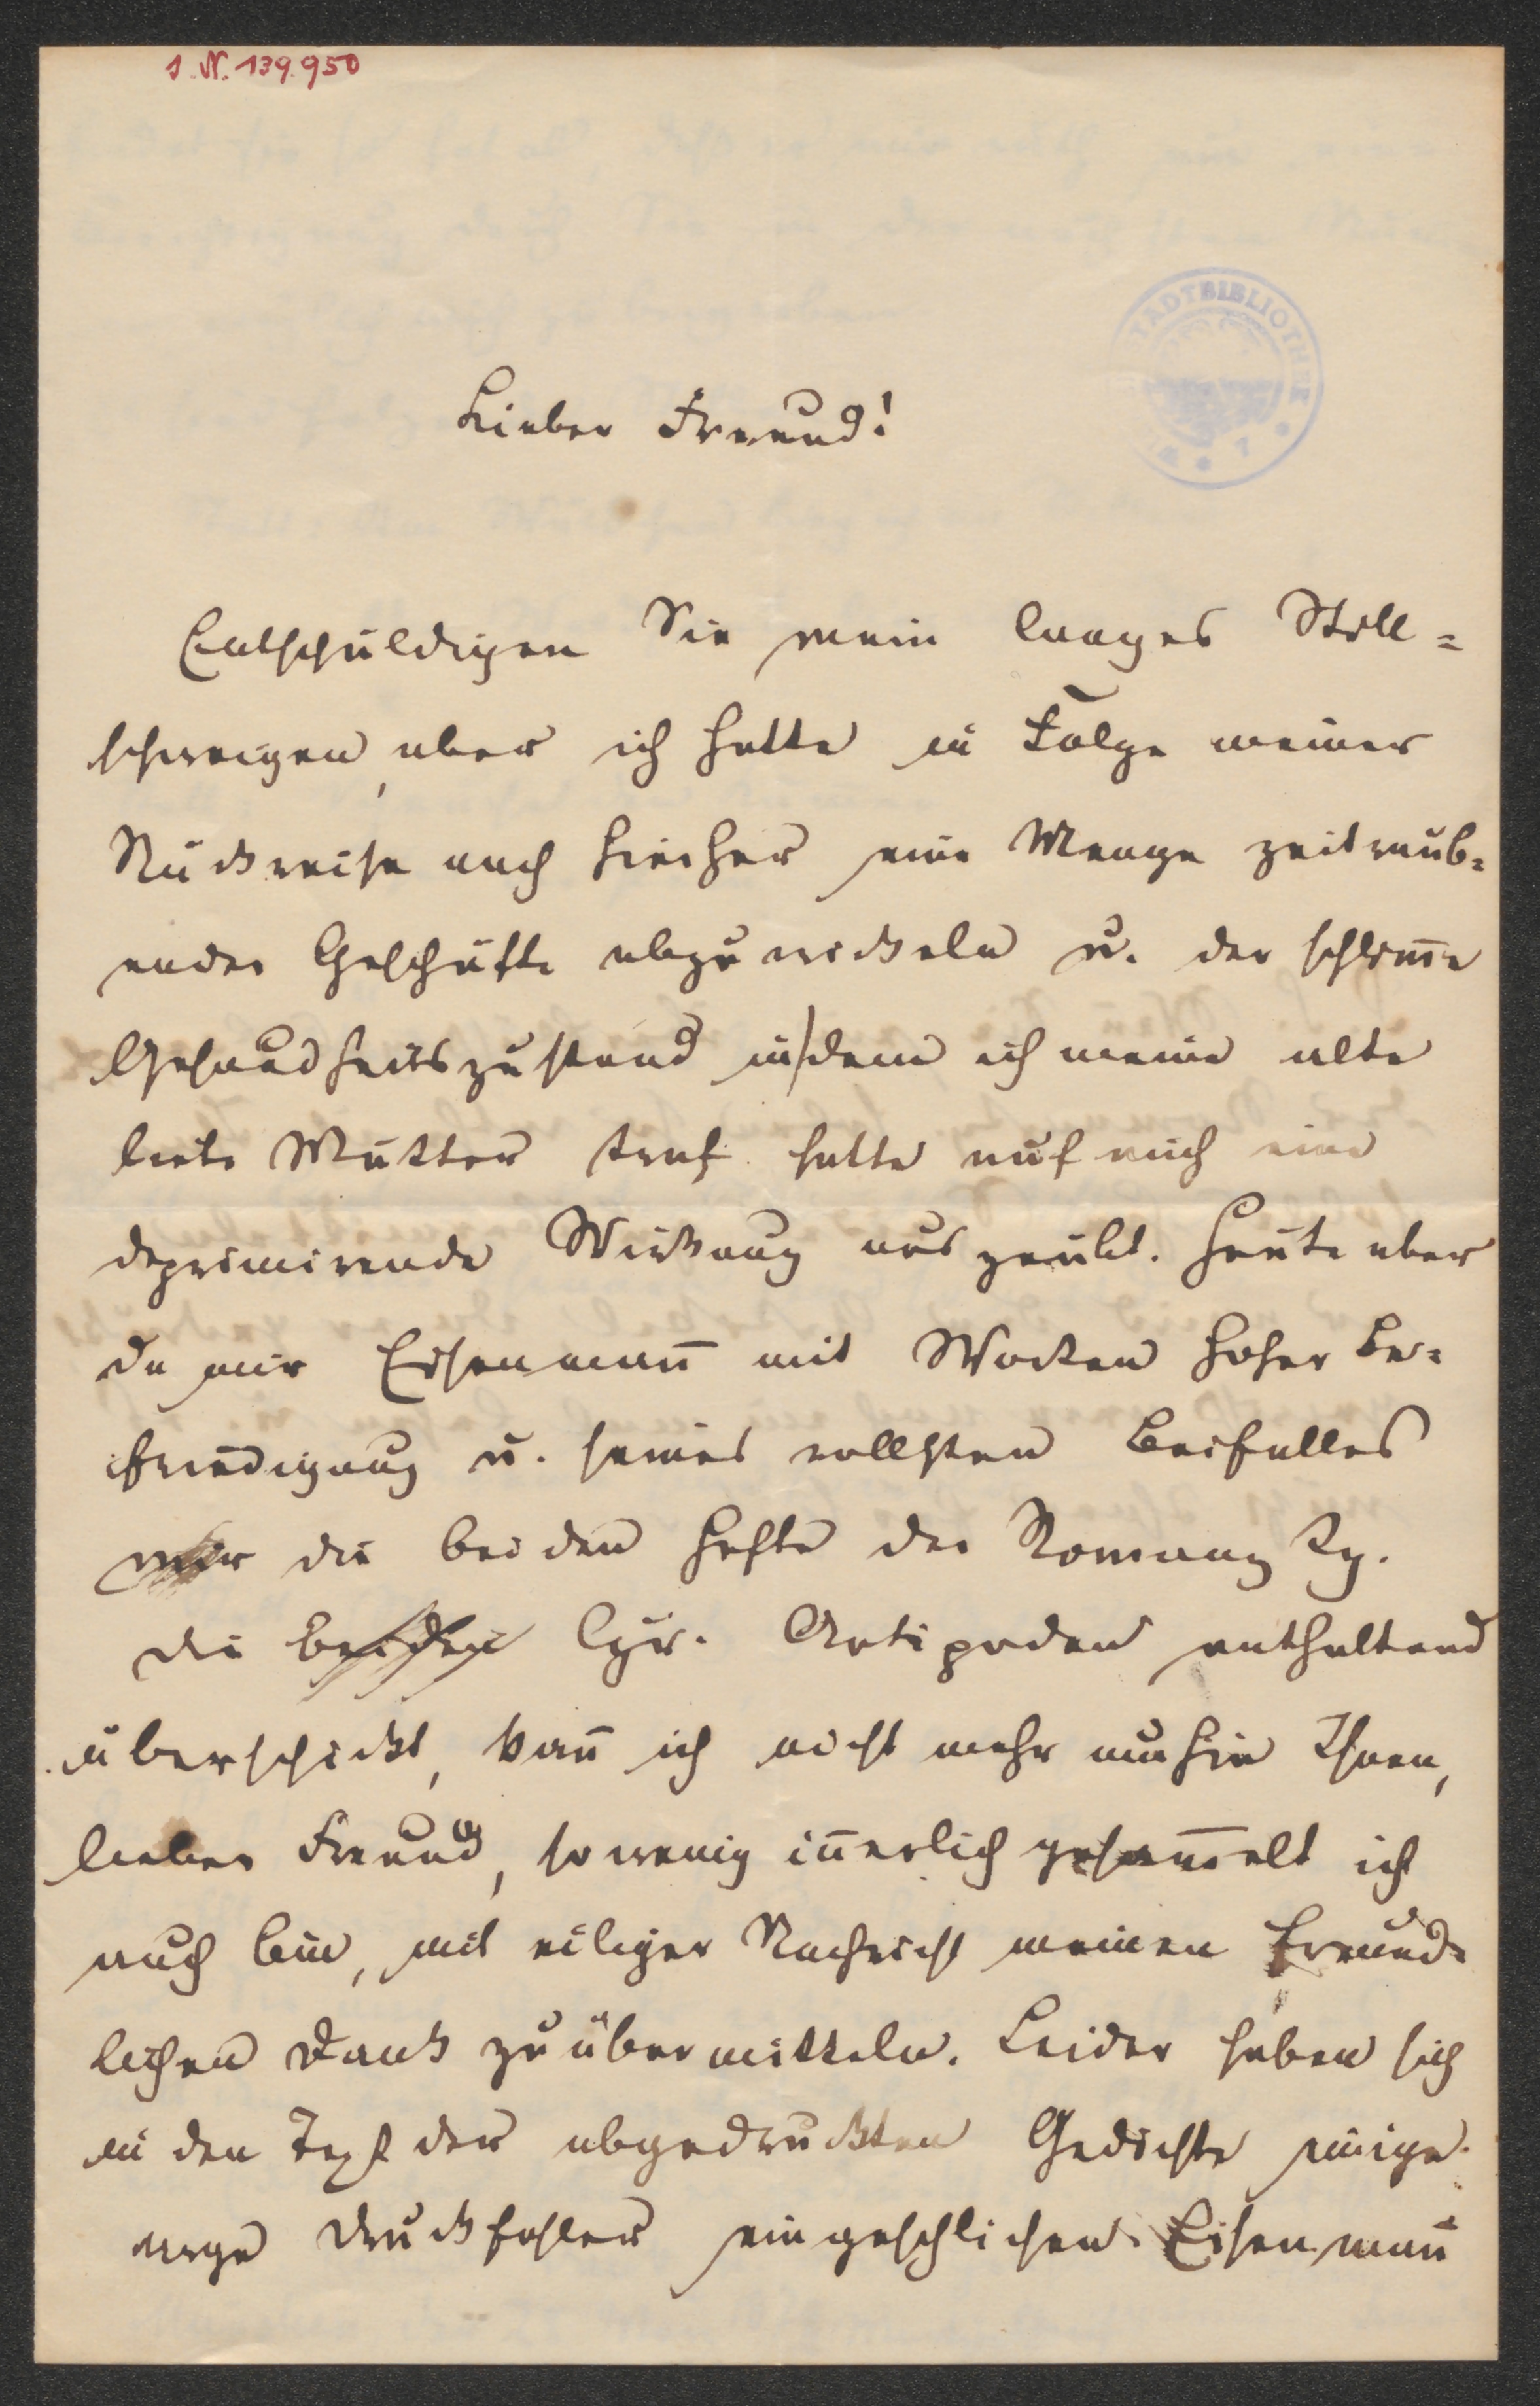 I. N. 139.950
STADTBIBLIOTHEK
Lieber Freund!
Entschuldigen Sie mein langes Still=
schweigen, aber ich hatte in Folge meiner
Rückreise nach hierher eine Menge zeitraub=
ender Geschäfte abzuwickeln u. der schlim̅e
Gesundheitszustand in dem ich meine alte
liebe Mutter traf hatte auf mich eine
deprimirende Wirkung ausgeübt. Heute aber
da mir Eisenman̅ mit Worten hoher Be=
friedigung u. seines vollsten Beifalles
mir die beiden Hefte der Romanz Zg.
die beiden lyr. Antipoden enthaltend
überschickt, kan̅ ich nicht mehr umhin Ihnen,
lieber Freund, so wenig in̅erlich gesam̅elt ich
auch bin, mit eiliger Nachricht meinen freund=
lichen Dank zu übermitteln. Leider haben sich
in den Text der abgedruckten Gedichte einige
arge Druckfehler eingeschlichen. Eisenman̅